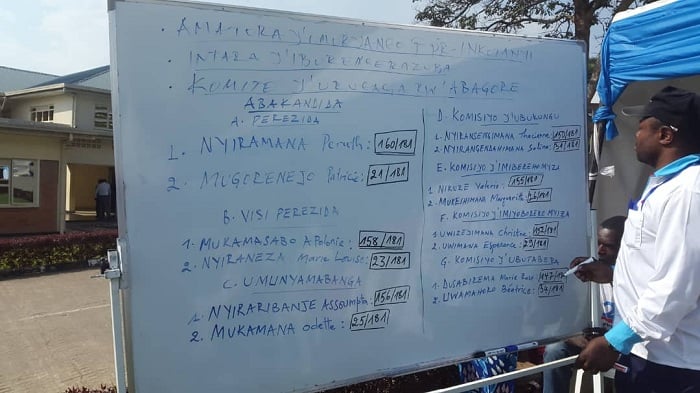 . AMATORA Y'IMIRYANGO FPR-INKOTANYI
. INTARA Y'IBURENGERAZUBA
. KOMITE Y'URUGAGA RW'ABAGORE
ABAKANDIDA
A. PEREZIDA
1. NYIRAMANA Peruth: 160/181
2. MUGORENEJO Patricie: 21/181
B. VISI PEREZIDA
1. MUKAMASABO Apolonie: 158/181
2. NYIRANEZA Marie Louise: 23/181
C. UMUNYAMABANGA
1. NYIRARIBANJE Assoumpta: 156/181
2. MUKAMANA odette: 25/181
D. KOMISIYO Y'UBUKUNGU
1. NYIRANSENGIMANA Thacienne: 150/181
2. NYIRANGENDAHIMANA Solina: 31/181
E. KOMISIYO Y'IMIBEREHOMYIZA
1. NIKUZE Valerie: 155/181
2. MUREHIMANA Marguerite: 26/181
F. KOMISIYO Y'IMIYOBORERE MYIZA
1. UWIZEJIMANA Christine: 152/181
2. UWIMANA Esperance: 29/181
G. KOMISIYO Y'UBUTABERA
1. DUSABIREMA Marie Rose: 147/181
2. UWAMAHORO Béatrice: 34/181